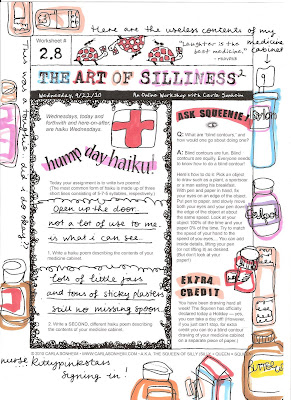 Here are the useless contents of my medicine cabinet
Worksheet #
2.8
"Laughter is the best medicine,"
THE ART OF SILLINESS²
Wednesday, 9/22/10
An Online Workshop with Carla Sonheim
Wednesdays, today and
forthwith and here-on-after,
are haiku Wednesdays.
hump day haiku!
Today your assignment is to write two poems!
(The most common form of haiku is made up of three
short lines consisting of 5-7-5 syllables, respectively.)
Open up the door
not a lot of use to me
is what i can see.
1. Write a haiku poem describing the contents of your
medicine cabinet.
Lots of little jars
and tons of sticky plasters
still no missing spoon
2. Write a SECOND, different haiku poem describing
the contents of your medicine cabinet.
ASK SQUEENIE!
Q: What are "blind contours," and
how would one go about doing one?
A: Blind contours are fun. Blind
contours are equally. Everyone needs
to know how to do a blind contour!
Here's how to do it: Pick an object
to draw such as a plant, a sportscar
or a man eating his breakfast.
With pen and paper in hand, fix
your eyes on an edge of the object.
Put pen to paper, and slowly move
both your eyes and your pen down
the edge of the object at about
the same speed. Look at your
object 100% of the time and your
paper 0% of the time. Try to match
the speed of your hand to the
speed of your eyes... You can add
inside details, lifting your pen
(or not lifting it) as desired.
(But don't look at your
paper!)
EXTRA
CREDIT
You have been drawing hard all
week! The Squeen has officially
declared today a Holiday — yes,
you can take a day off! However,
if you just can't stop, for extra
credit you can do a blind contour
drawing of your medicine cabinet
on a separate piece of paper.
© 2010 CARLA SONHEIM • WWW.CARLASONHEIM.COM
Savlon
Calpol
nurse kittypinkstars
signing in!